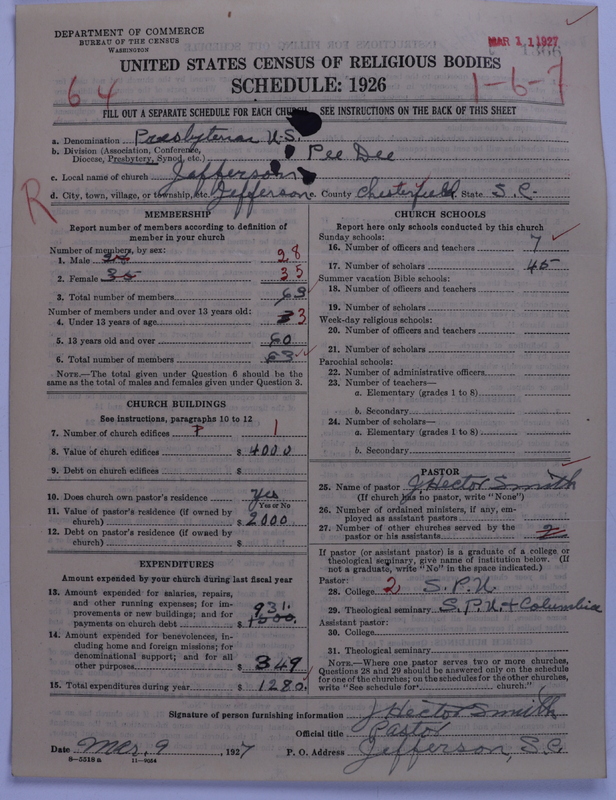 DEPARTMENT OF COMMERCE
BUREAU OF THE CENSUS
WASHINGTON
MAR 11 1927
UNITED STATES CENSUS OF RELIGIOUS BODIES
SCHEDULE: 1926
64
1-6-7
FILL OUT A SEPARATE SCHEDULE FOR EACH CHURCH. SEE INSTRUCTIONS ON THE BACK OF THIS SHEET
a. Denomination Presbyterian U.S.
b. Division (Association, Conference, Diocese, Presbytery, Synod, etc.) Pee Dee
c. Local name of church Jefferson
R
d. City, town, village, or township, etc. Jefferson e. County Chesterfield State S.C.
MEMBERSHIP
Report number of members according to definition of
member in your church
Number of members, by sex:
1. Male 28
2. Female 35
3. Total number of members 63
Number of members under and over 13 years old:
4. Under 13 years of age 3
5. 13 years old and over 60
6. Total number of members 63
NOTE.—The total given under Question 6 should be
same as the total of males and females given under Question 3.
CHURCH BUILDINGS
See instructions, paragraphs 10 to 12
7. Number of church edifices 1
8. Value of church edifices $ 4000
9. Debt on church edifices $
10. Does church own pastor's residence yes
Yes or No
11. Value of pastor's residence (if owned by
church) $ 2000
12. Debt on pastor's residence (if owned by
church) $
EXPENDITURES
Amount expended by your church during last fiscal year
13. Amount expended for salaries, repairs,
and other running expenses; for im-
provements or new buildings; and for
payments on church debt $ 931.
14. Amount expended for benevolences, in-
cluding home and foreign missions; for
denominational support; and for all
other purposes $ 349
15. Total expenditures during year $ 1280.
CHURCH SCHOOLS
Report here only schools conducted by this church
Sunday schools:
16. Number of officers and teachers 7
17. Number of scholars 45
Summer vacation Bible schools:
18. Number of officers and teachers
19. Number of scholars
Week-day religious schools:
20. Number of officers and teachers
21. Number of scholars
Parochial schools:
22. Number of administrative officers
23. Number of teachers—
a. Elementary (grades 1 to 8)
b. Secondary
24. Number of scholars—
a. Elementary (grades 1 to 8)
b. Secondary
PASTOR
25. Name of pastor J Hector Smith
(If church has no pastor, write "None")
26. Number of ordained ministers, if any, em-
ployed as assistant pastors
27. Number of other churches served by the
pastor or his assistants 2
If pastor (or assistant pastor) is a graduate of a college or
theological seminary, give name of institution below. (If
not a graduate, write "No" in the space indicated.)
Pastor:
28. College 2 S.P.U.
29. Theological seminary S.P.U. & Columbia
Assistant pastor:
30. College
31. Theological seminary
NOTE.—Where one pastor serves two or more churches,
Questions 28 and 29 should be answered only on the schedule
for one of the churches; on the schedules for the other churches,
write "See schedule for church."
Signature of person furnishing information J Hector Smith
Official title Pastor
Date Mar. 9, 1927 P. O. Address Jefferson, S.C.
8—5518 a 11—9054